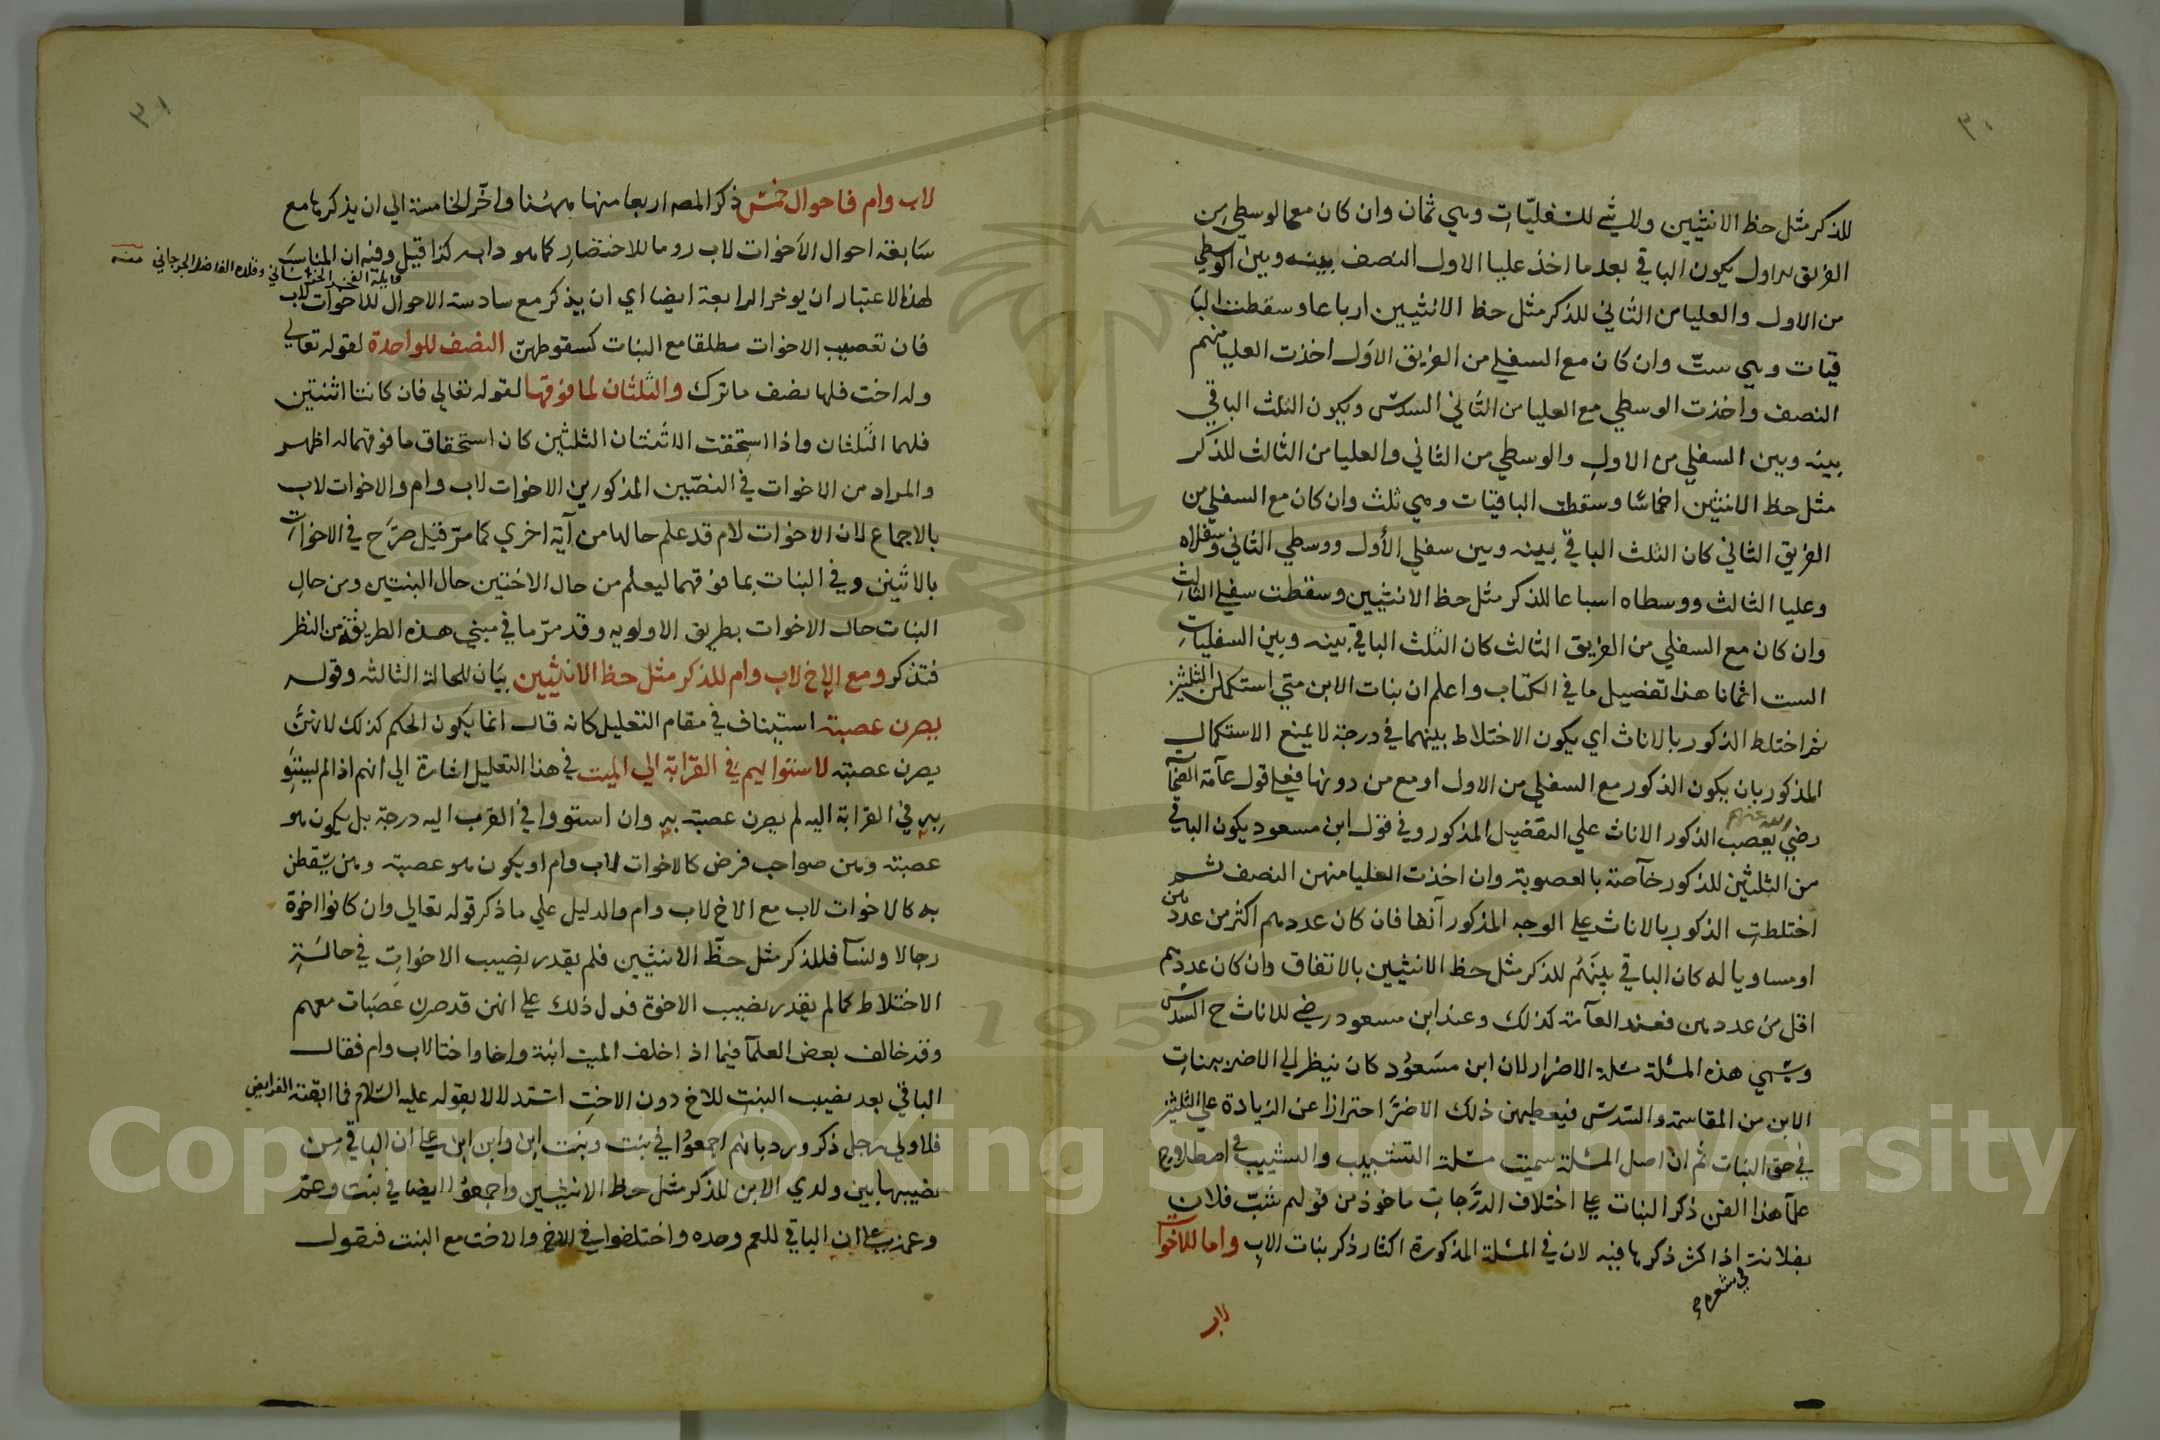 ٣٠
للذكر مثل حظ الانثيين ولا شئ للسفليات وهي ثمان وان كان مع الوسطي من
الفريق الاول يكون الباقي بعد ما اخذ عليا الاول النصف بينه وبين الوسطي
من الاول والعليا من الثاني للذكر مثل حظ الانثيين ارباعا وسقطت البا
قيات وهي ست وان كان مع السفلي من الفريق الاول اخذت العليا منهم
النصف واخذت الوسطي مع العليا من الثاني السدس ويكون الثلث الباقي
بينه وبين السفلي من الاول والوسطي من الثاني والعليا من الثالث للذكر
مثل حظ الانثيين اخماسا وسقطت الباقيات وهي ثلث وان كان مع السفلي من
الفريق الثاني كان الثلث الباقي بينه وبين سفلي الأول ووسطي الثاني وسفلاه
وعليا الثالث ووسطاه اسباعا للذكر مثل حظ الانثيين وسقطت سفلي الثالث
وان كان مع السفلي من الفريق الثالث كان الثلث الباقي بينه وبين السفليات
الست اثمانا هذا تفصيل ما في الكتاب واعلم ان بنات الابن متي استكملن الثلثين
ثم اختلط الذكور بالاناث اي يكون الاختلاط بينهما في درجة لا يمنع الاستكمال
المذكور بان يكون الذكور مع السفلي من الاول او مع من دونها فعلي قول عآمة الصحآ
رضي الله عنهم يعصب الذكور الاناث علي التفضيل المذكور وفي قول ابن مسعود يكون الباقي
من الثلثين للذكور خآصة بالعصوبة وان اخذت العليا منهن النصف ثم
اختلطت الذكور بالاناث علي الوجه المذكور آنفا فان كان عددهم اكثر من عددهن
او مساويا له كان الباقي بينهم للذكر مثل حظ الانثيين بالاتفاق وان كان عددهم
اقل من عددهن فعند العآمة كذلك وعند ابن مسعود رضي للاناث ح السدس
وسمي هذه المسئلة مسئلة الاضرار لان ابن مسعود كان ينظر الي الاضر ببنات
الابن من المقاسمة والسدس فيعطيهن ذلك الاضر احترازا عن الزيادة علي الثلثين
في حق البنات ثم ان اصل المسئلة سميت مسئلة التشبيب والتشبيب في اصطلاح
علمآ هذا الفن ذكر البنات علي اختلاف الدرجات ماخوذ من قولهم شبب فلان
بفلانة اذا كثر ذكرها فيه لان في المسئلة المذكورة اكثار ذكر بنات الاب واما للاخوات
في شعره
لاب
٣١
لاب وام فاحوال خمس ذكر المصه اربعا منها ههنا واخّر الخامسة الي ان يذكرها مع
سابقة احوال الاخوات لاب روما للاختصار كما هو دابه كذا قيل وفيه ان المناسب
لهذا الاعتبار ان يوخر الرابعة ايضا اي ان يذكر مع سادسة الاحوال للاخوات لاب
وقلاه الفاضل الجرجاني منه
فان تعصيب الاخوات مطلقا مع البنات كسقوطهن النصف للواحدة لقوله تعالي
وله اخت فلها نصف ما ترك والثلثان لما فوقها لقوله تعالي فان كانتا اثنتين
فلهما الثلثان واذا استحقت الاثنتان الثلثين كان استحقاق ما فوقهما له اظهر
والمراد من الاخوات في النصّين المذكورين الاخوات لاب وام والاخوات لاب
بالاجماع لان الاخوات لام قد علم حالها من آية اخري كما مرّ قيل صرّح في الاخوات
بالاثنين وفي البنات بما فوقهما ليعلم من حال الاختين حال البنتين ومن حال
البنات حال الاخوات بطريق الاولويه وقد مرّ ما في مبني هذه الطريقة من النظر
فتذكر ومع الاخ لاب وام للذكر مثل حظ الانثيين بيان للحالة الثالثه وقوله
يصرن عصبته استيناف في مقام التعليل كانه قال انما يكون الحكم كذلك لانهن
يصرن عصبته لاستوائهم في القرابة الي الميت في هذا التعليل اشارة الي انهم اذا لم يستو
به في القرابة اليه لم يصرن عصبة به وان استووا في القرب اليه درجة بل يكون هو
عصبته وهن صواحب فرض كالاخوات لاب وام او يكون هو عصبته وهن يسقطن
به كالاخوات لاب مع الاخ لاب وام والدليل علي ما ذكر قوله تعالي وان كانوا اخوة
رجالا ونسآ فللذكر مثل حظّ الانثيين فلم يقدر نصيب الاخوات في حالة
الاختلاط كما لم يقدر نصيب الاخوة فدل ذلك علي انهن قد صرن عصبات معهم
وقد خالف بعض العلمآ فيما اذا خلف الميت ابنة واخا واختا لاب وام فقال
الباقي بعد نصيب البنت للاخ دون الاخت استدلالا بقوله عليه السلام فما ابقته الفرايض
فلاولي رجل ذكر ورد بانهم اجمعوا في بنت وبنت ابن وابن ابن علي ان الباقي من
نصيبها بين ولدي الابن للذكر مثل حظ الانثيين واجمعوا ايضا في بنت وعمّ
وعمة علي ان الباقي للعم وحده واختلفوا في الاخ والاخت مع البنت فنقول
Copyright © King Saud University
1957